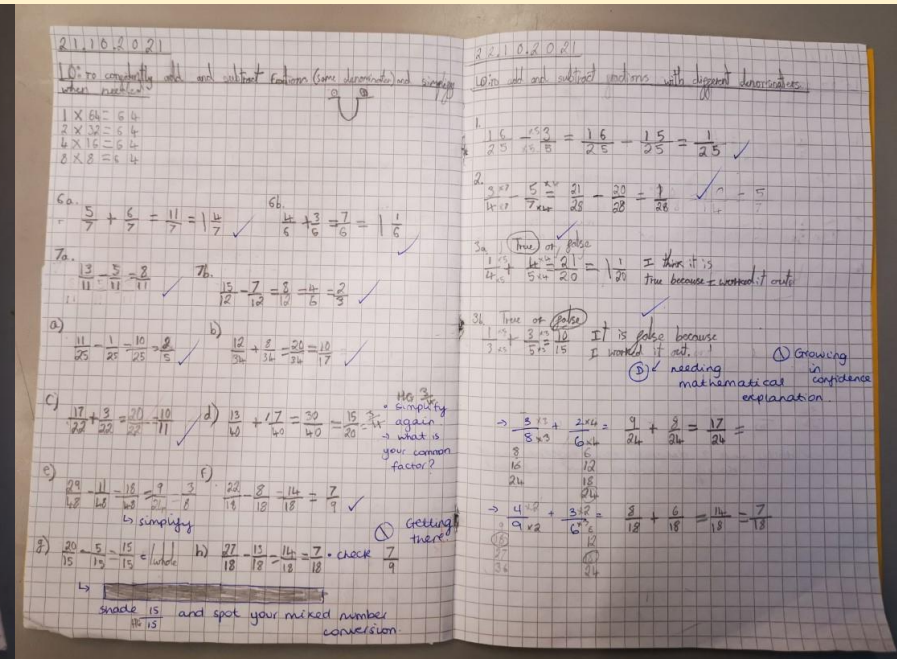 21.10.2021
LO: to confidently add and subtract fractions (same denominator) and simplify
when needed.
1 × 64 = 64
2 × 32 = 64
4 × 16 = 64
8 × 8 = 64
6a.
5/7 + 6/7 = 11/7 = 1 4/7
6b.
4/6 + 3/6 = 7/6 = 1 1/6
7a.
13/11 - 5/11 = 8/11
7b.
15/12 - 7/12 = 8/12 = 4/6 = 2/3
a)
11/25 - 1/25 = 10/25 = 2/5
b)
12/34 + 8/34 = 20/34 = 10/17
c) 17/22 + 3/22 = 20/22 = 10/11
d) 13/40 + 17/40 = 30/40 = 15/20 =
HG 3/4
• simplify
again
→ what is
your common
factor?
e) 29/48 - 11/48 = 18/48 = 9/24 = 3/8
↳ simplify
f) 22/18 - 8/18 = 14/18 = 7/9
Getting
there!
g) 20/15 - 5/15 = 15/15 = 1 whole
h) 27/18 - 13/18 = 14/18 = 7/18 • check 7/9
↳
shade 15/15 and spot your mixed number
HG
conversion.
22.10.2021
LO: to add and subtract fractions with different denominators
1.
16/25 - 3/5 ×5 ×5 = 16/25 - 15/25 = 1/25
2.
3/4 ×7 ×7 - 5/7 ×4 ×4 = 21/28 - 20/28 = 1/28
3a True or false
1/4 ×5 ×5 + 4/5 ×4 ×4 = 21/20 = 1 1/20 I think it is
true because I worked it out
3b True or false
1/3 ×5 + 3/5 ×3 = 10/15 It is false because
I worked it out.
D needing
mathematical
explanation.
Growing
in
confidence
→ 3/8 ×3 ×3 + 2/6 ×4 ×4 = 9/24 + 8/24 = 17/24 =
8 6
16 12
24 18
24
→ 4/9 ×2 ×2 + 3/6 = 8/18 + 6/18 = 14/18 = 7/18
12
27
36 24